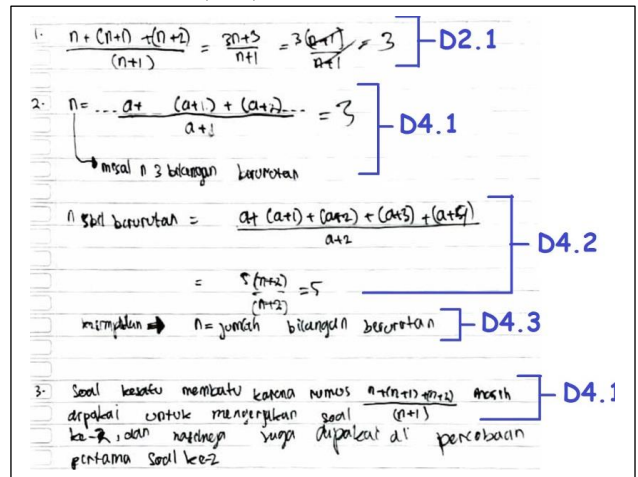 1. n + (n+1) + (n+2) / (n+1) = 3n+3 / n+1 = 3(n+1) / n+1 = 3 D2.1
2. n = ... a + (a+1) + (a+2) ... / a+1 = 3 D4.1
misal n 3 bilangan berurutan
n 5bil berurutan = a + (a+1) + (a+2) + (a+3) + (a+4) / a+2 D4.2
= 5(n+2) / (n+2) = 5
n = jumlah bilangan berurutan D4.3
3. Soal kesatu membatu karena rumus n+(n+1)+(n+2) / (n+1) masih D4.1
dipakai untuk mengerjakan soal
ke-2, dan hasilnya juga dipakai di percobaan
pertama soal ke-2